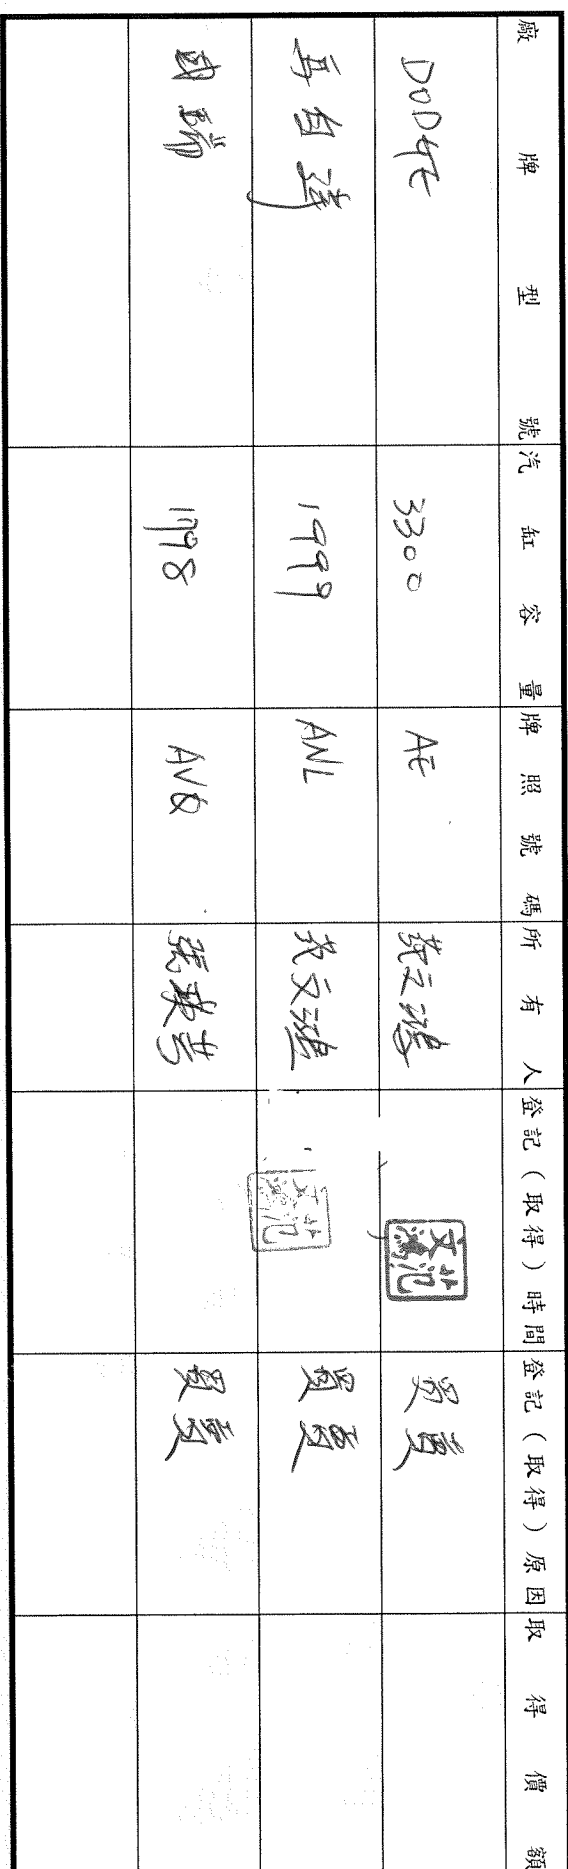 廠牌型號 汽缸容量 牌照號碼 所有人 登記(取得)時間 登記(取得)原因 取得價額
DODGE 3300 AE 范文 買賣
馬自達 1999 ANL 范文 買賣
國瑞 1798 AVQ 張 買賣